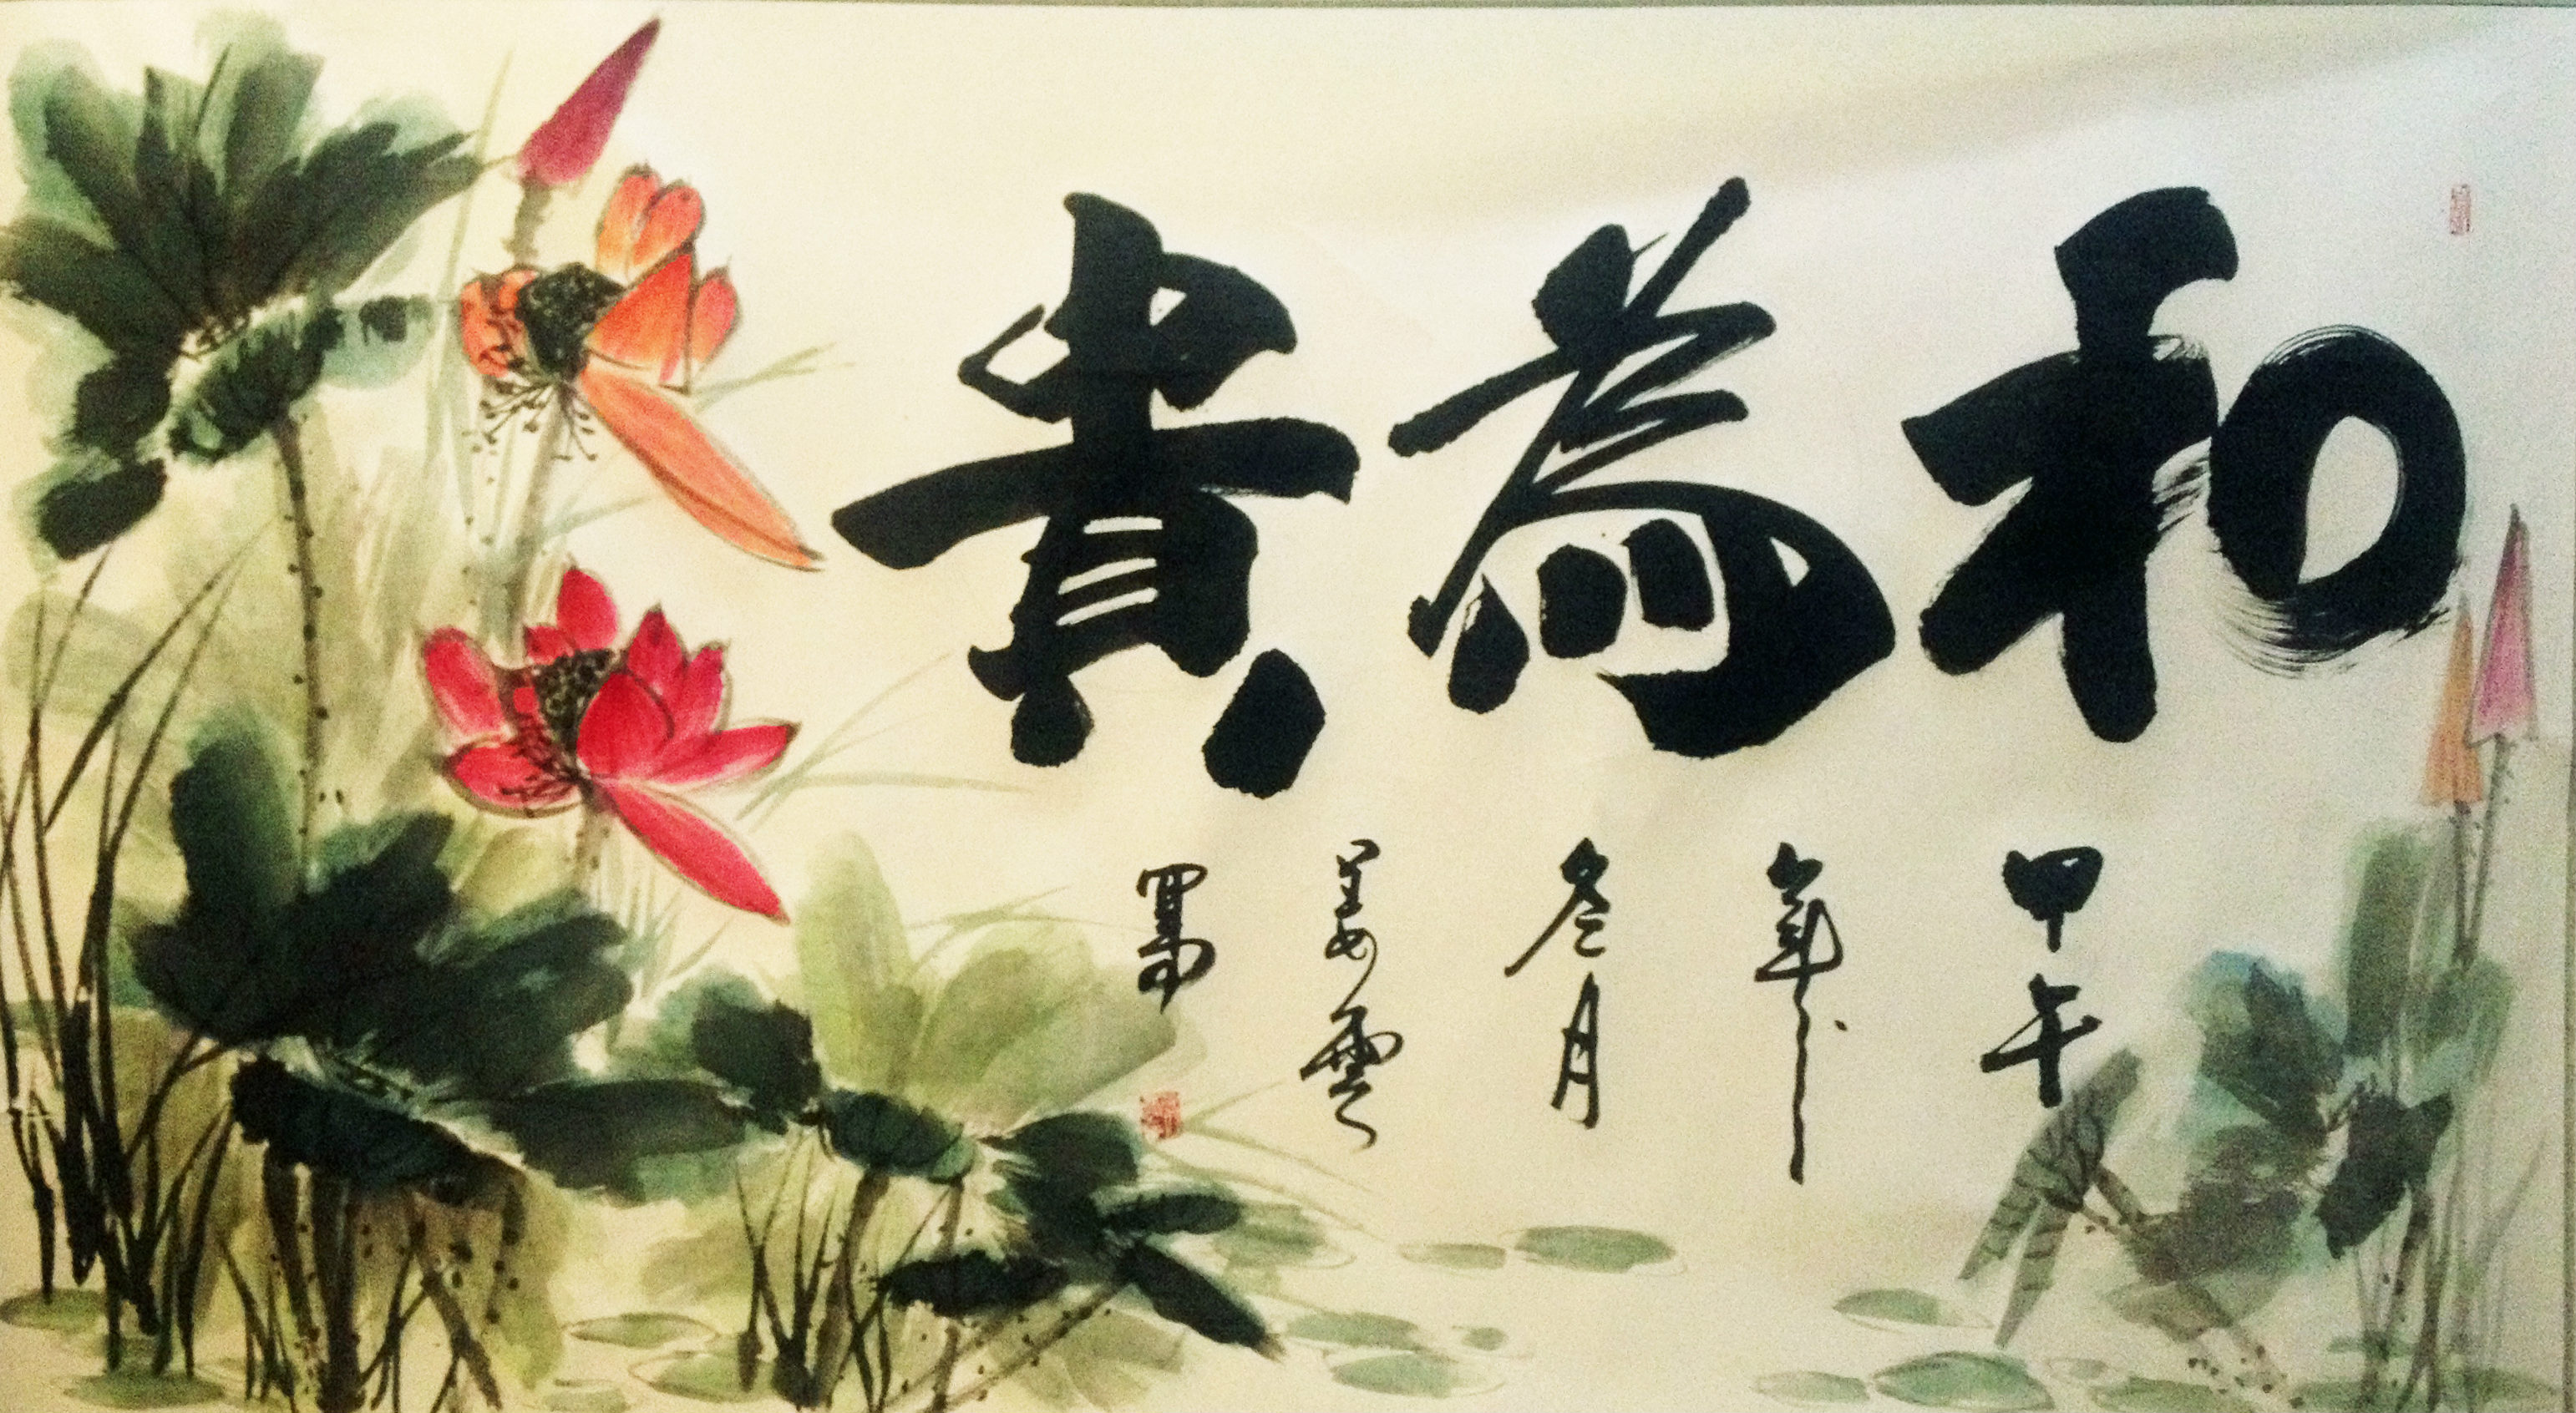 和為貴
甲午
年
冬月
姜雲